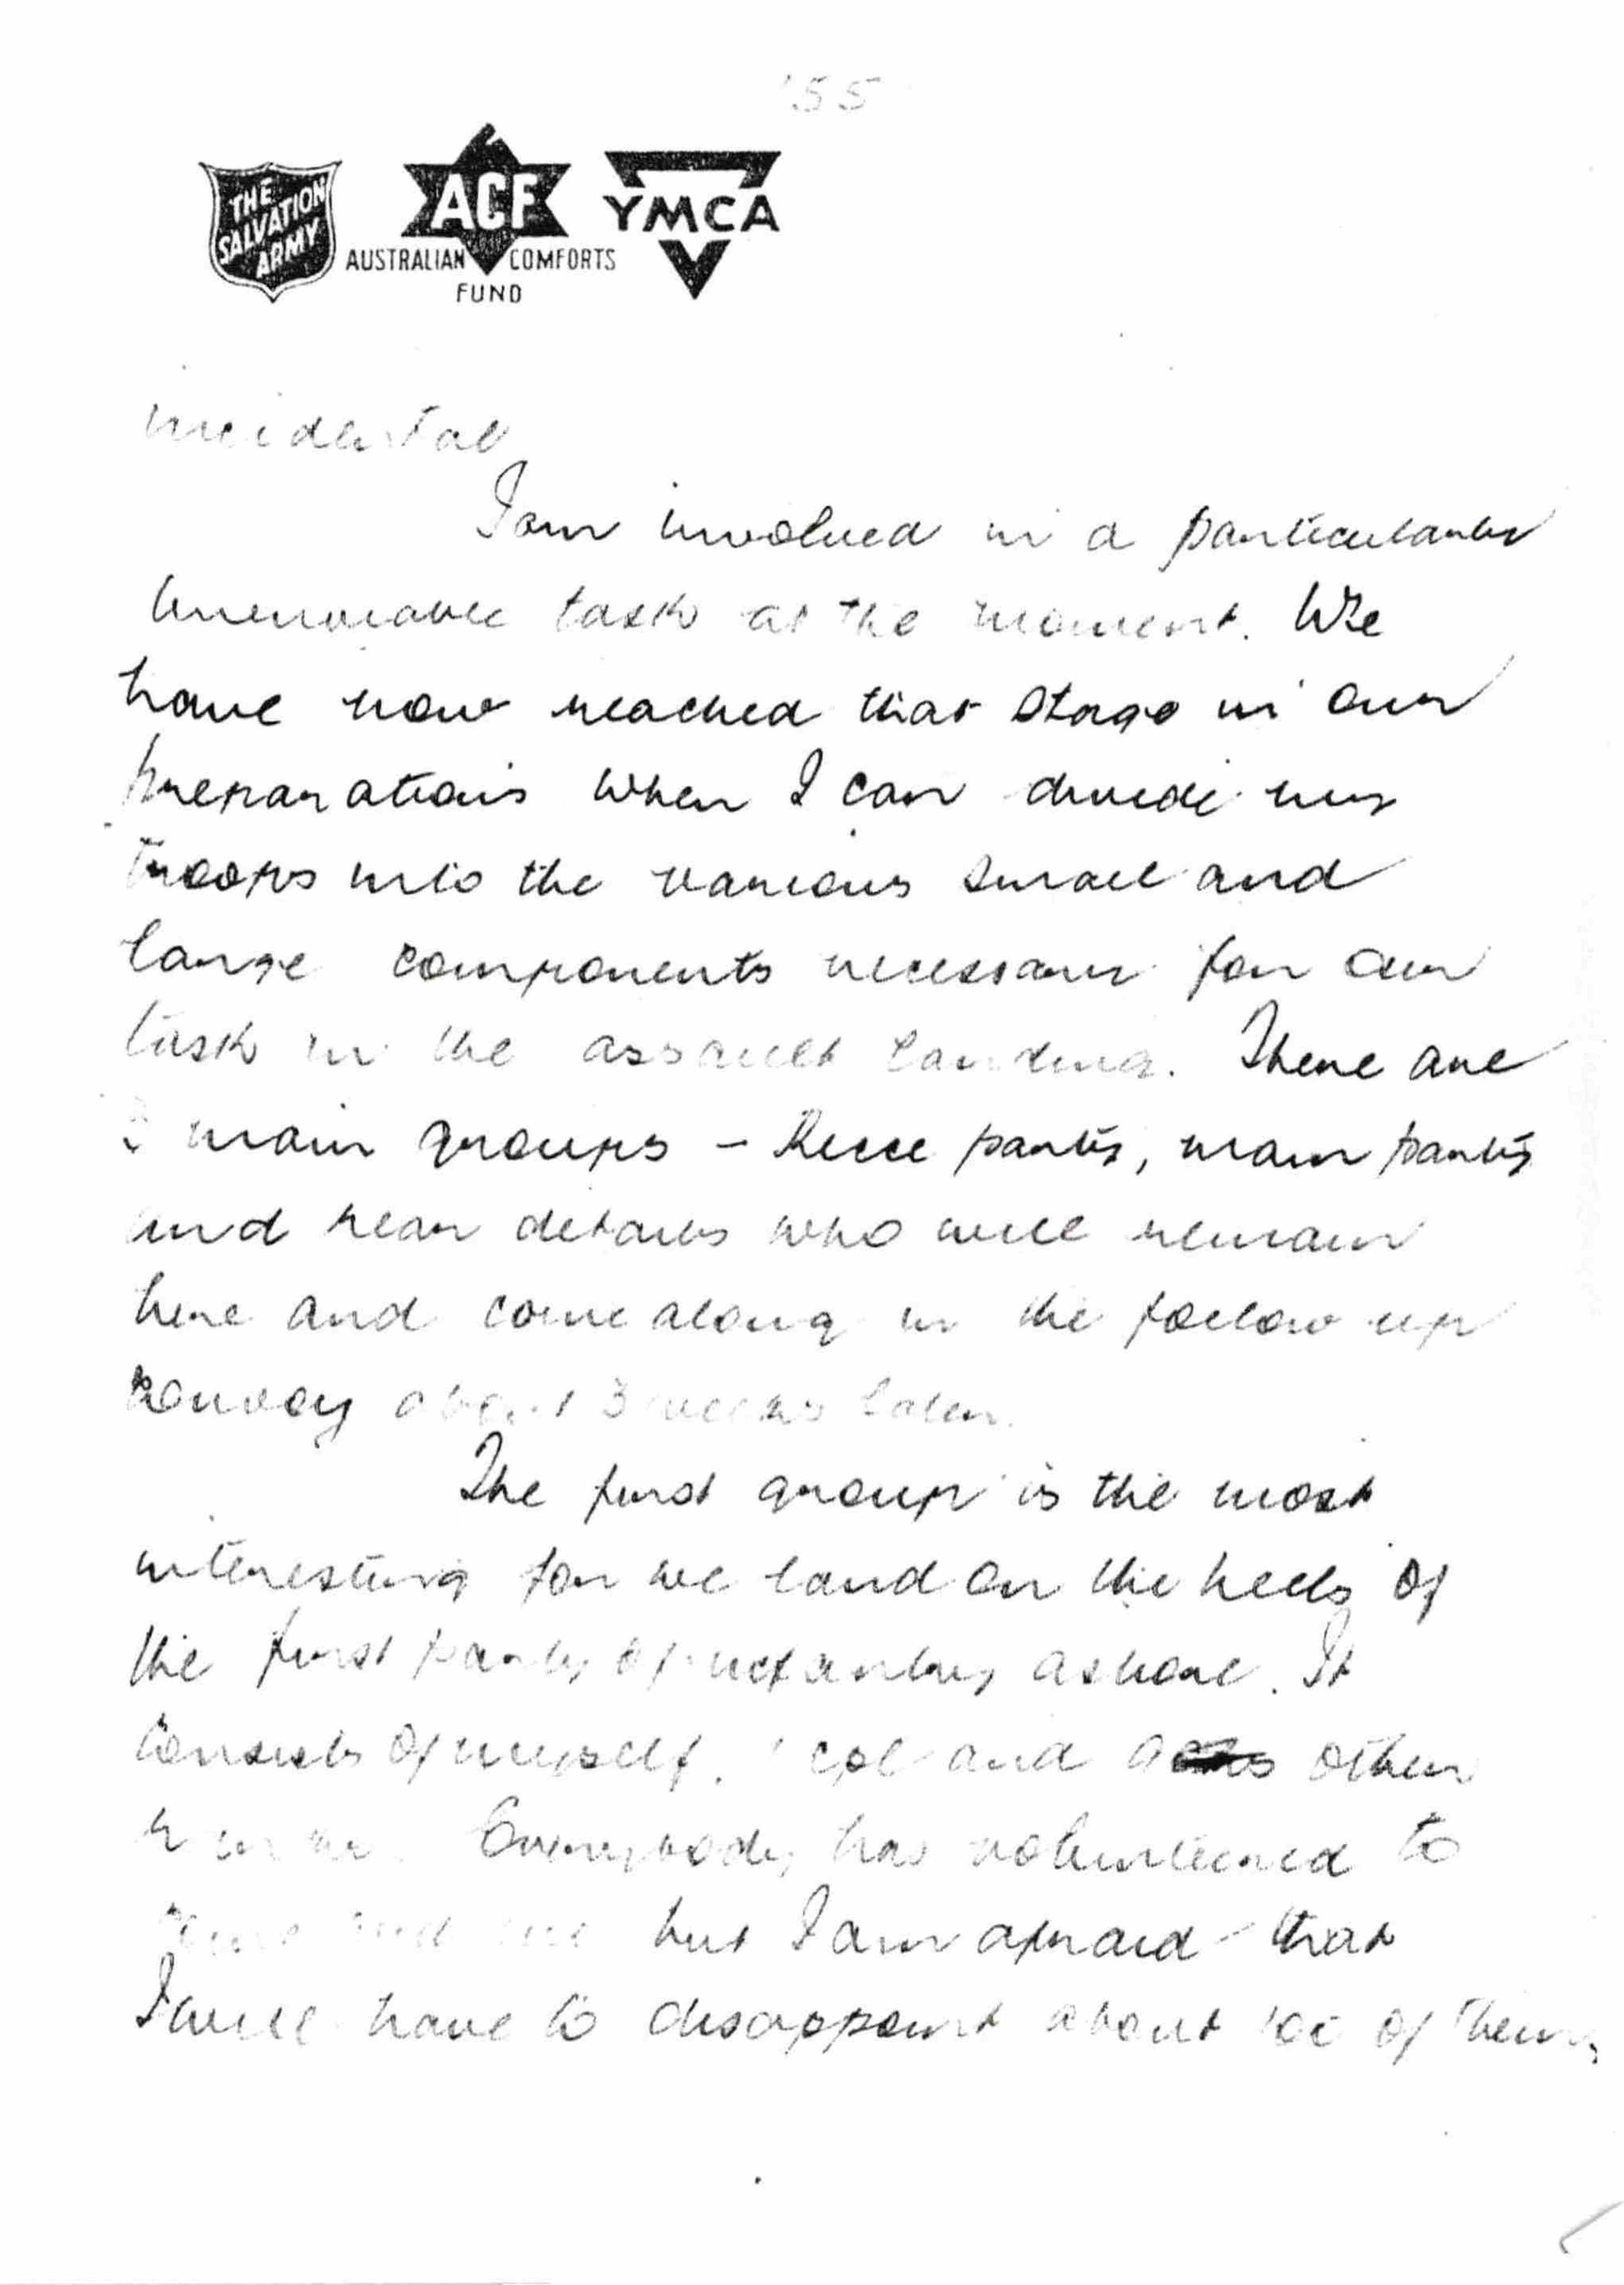 155
THE
SALVATION
ARMY
ACF
AUSTRALIAN COMFORTS
FUND
YMCA
incidental
I am involved in a particularly
unenviable task at the moment. We
have now reached that stage in our
preparations when I can divide my
troops into the various small and
large components necessary for our
task in the assault landing. There are
main groups – Recce party, main party
and rear details who will remain
here and come along in the follow up
convoy about 3 weeks later.
The first group is the most
interesting for we land on the heels of
the first party of infantry ashore. It
consists of myself, 1 cpl and other
Everybody has volunteered to
but I am afraid that
I will have to disappoint about 100 of them,